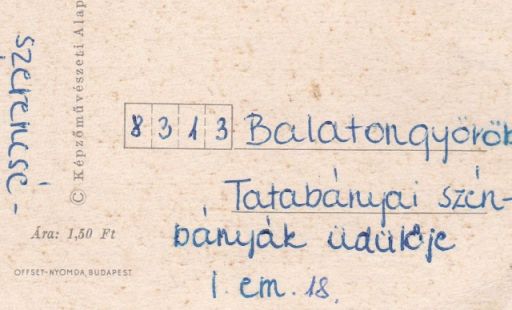 szerencsé-
© Képzőművészeti Alap
8313 Balatongyörök
Tatabányai szén-
bányák üdülője
I. em. 18.
Ára: 1,50 Ft
OFFSET-NYOMDA, BUDAPEST